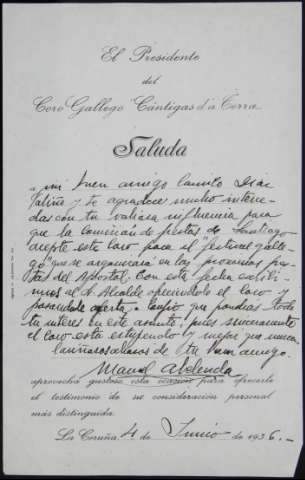 El Presidente
del
Coro Gallego "Cántigas d'a Terra"
Saluda
a mi buen amigo Camilo Díaz
Baliño y le agradece mucho interce-
das con tu valiosa influencia para
que la Comisión de fiestas de Santiago
acepte este Coro para el "festival galle-
go" que se organizará en las próximas fies-
tas del Apostol. Con esta fecha escribi-
mos al Sr. Alcalde ofreciéndole el Coro y
pasándole oferta. Confío que pondrás todo
tu interes en este asunto, pues sinceramente
el Coro está estupendo y mejor que nunca.
de tu buen amigo.
Manuel Abelenda
aprovecha gustoso esta ocasión para ofrecerle
el testimonio de su consideración personal
más distinguida.
La Coruña, 4 de Junio de 1936.-